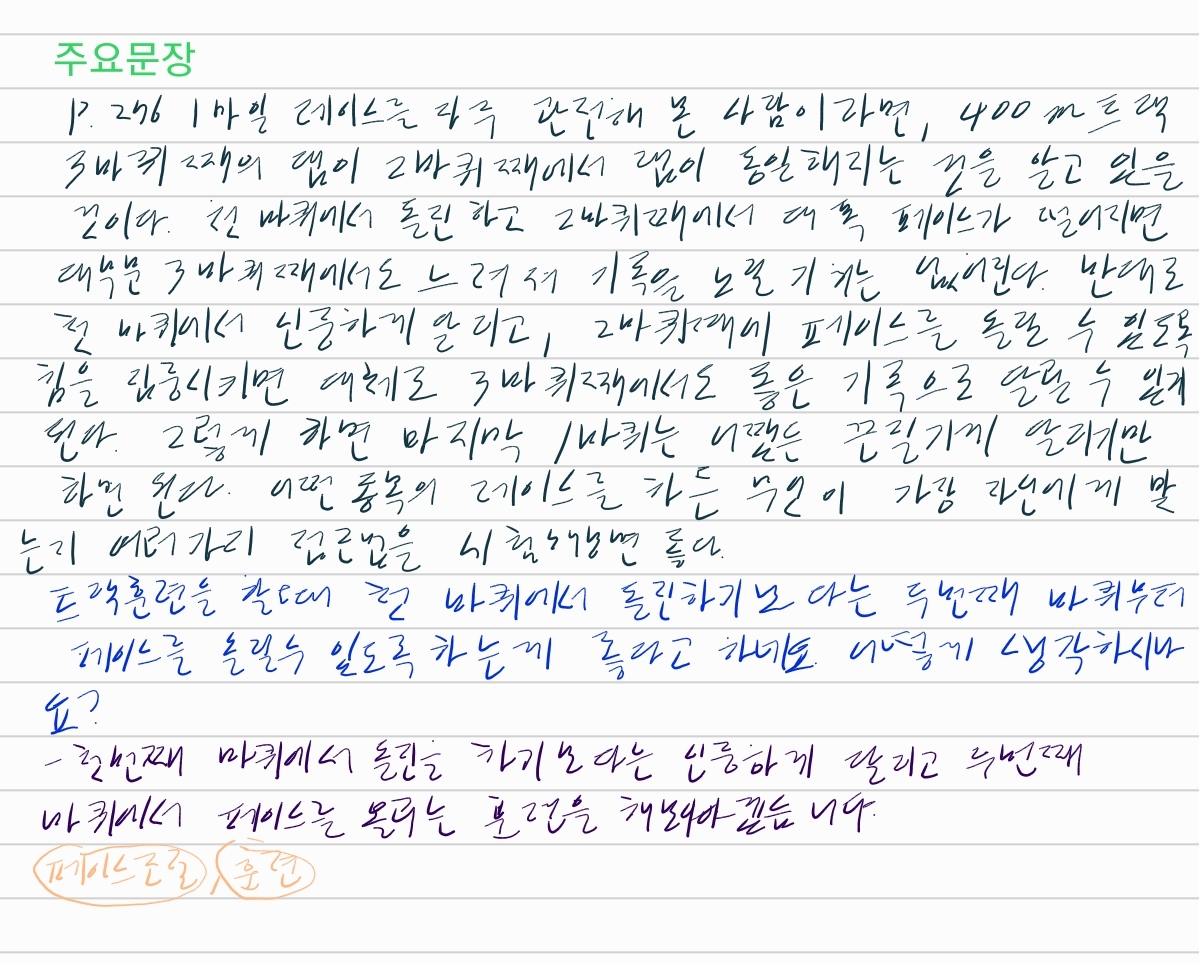 주요문장
P. 296 1마일 레이스를 자주 관전해 본 사람이라면, 400m 트랙
3바퀴째의 랩이 2바퀴째에서 랩이 동일해지는 것을 알고 있을
것이다. 첫 바퀴에서 돌진하고 2바퀴째에서 대폭 페이스가 떨어지면
대부분 3바퀴째에서도 느려져 기록을 노릴 기회는 없어진다. 반대로
첫 바퀴에서 신중하게 달리고, 2바퀴째에 페이스를 올릴 수 있도록
힘을 집중시키면 대체로 3바퀴째에서도 좋은 기록으로 달릴 수 있게
된다. 그렇게 하면 마지막 1바퀴는 어쨌든 끈질기게 달리기만
하면 된다. 어떤 종목의 레이스를 하든 무엇이 가장 자신에게 맞
는지 여러가지 접근법을 시험해보면 좋다.
트랙훈련을 할때 첫 바퀴에서 돌진하기보다는 두번째 바퀴부터
페이스를 올릴수 있도록 하는게 좋다고 하네요. 어떻게 생각하시나
요?
- 첫번째 바퀴에서 돌진을 하기보다는 신중하게 달리고 두번째
바퀴에서 페이스를 올리는 훈련을 해봐야겠습니다.
페이스조절, 훈련